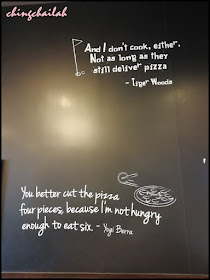 chingchailah
And I don't cook, either.
Not as long as they
still deliver pizza
- Tiger Woods
You better cut the pizza
four pieces, because I'm not hungry
enough to eat six. - Yogi Berra